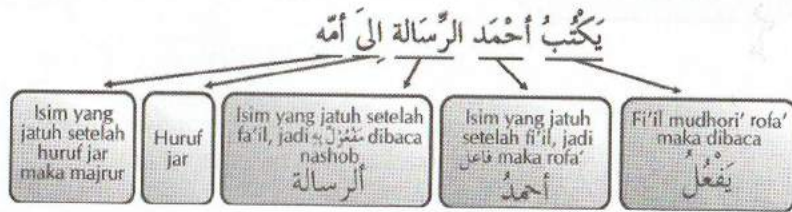 يَكْتُبُ أحْمَد الرِّسَالة اِلىَ أمّه
Isim yang
jatuh setelah
huruf jar
maka majrur
Huruf
jar
Isim yang jatuh setelah
fa'il, jadi مَفْعُوْلٌ بِهِ dibaca
nashob
ألرسالة
Isim yang jatuh
setelah fi'il, jadi
فاعل maka rofa'
أحمدُ
Fi'il mudhori' rofa'
maka dibaca
يَفْعُلُ